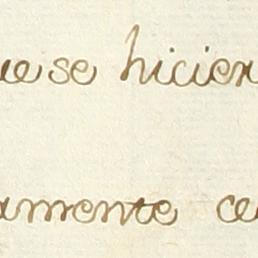 ue se hicier
amente ce